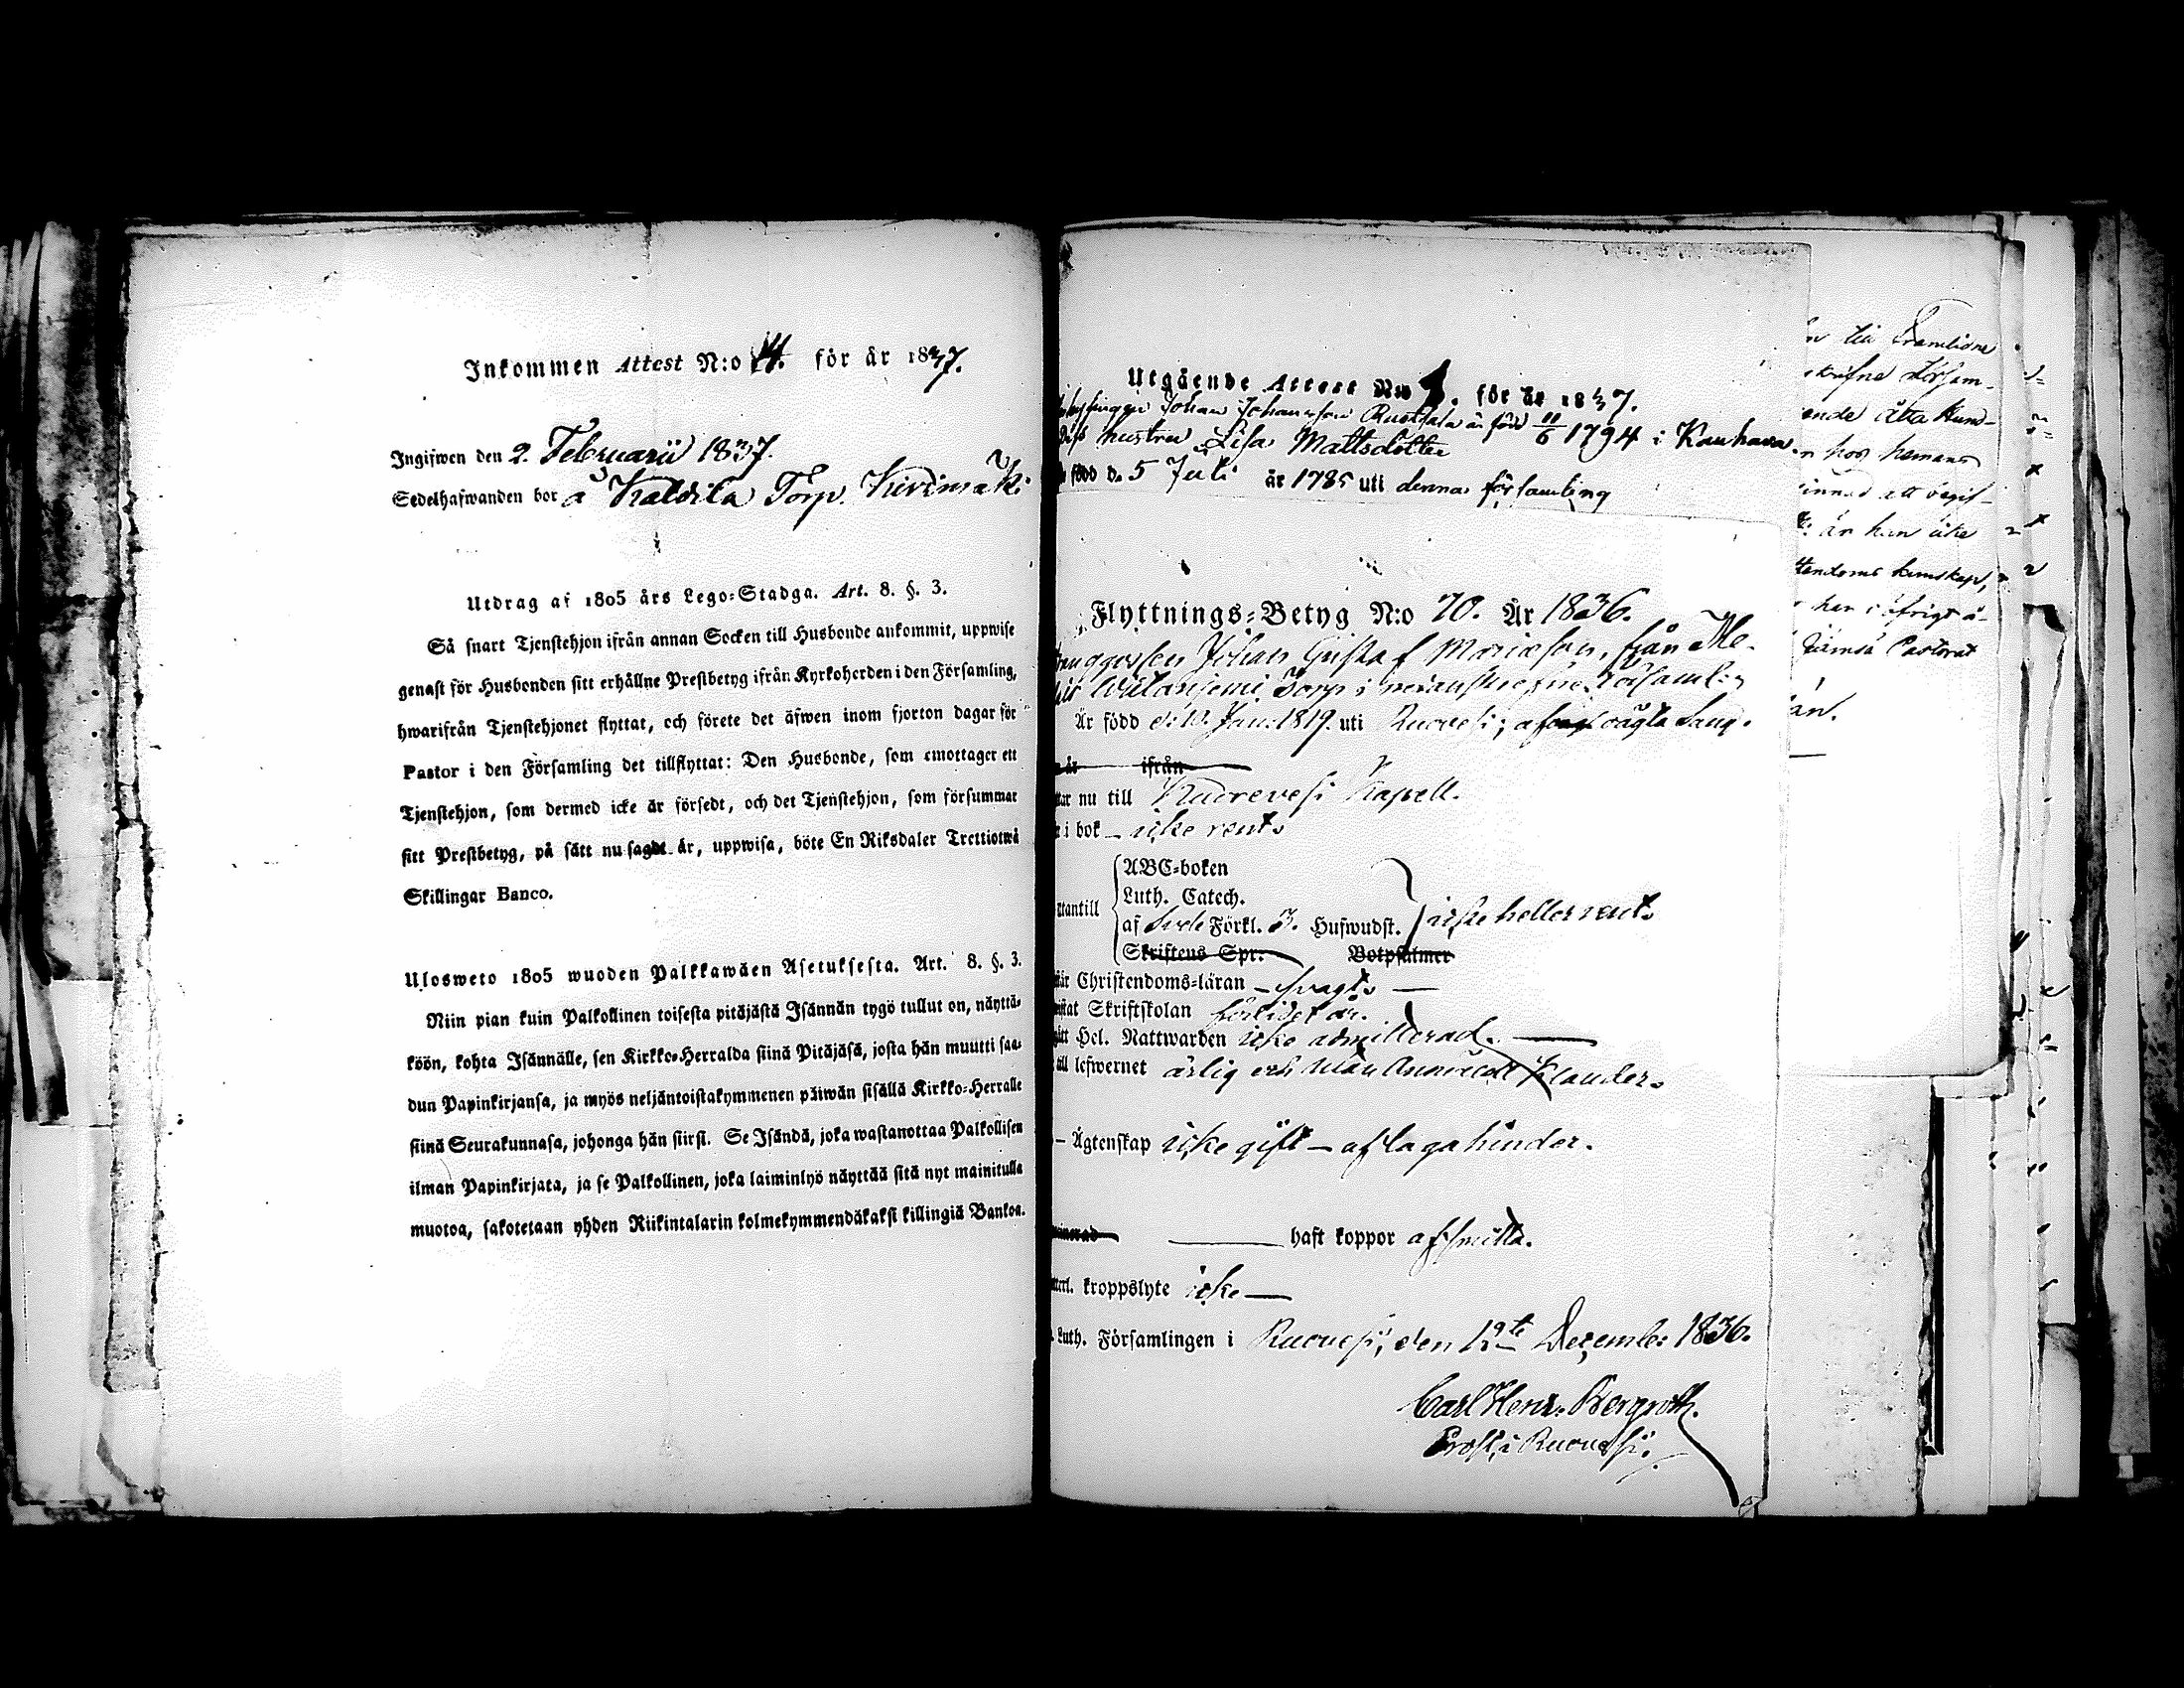 Inkommen Attest N:o 14. för år 1837.
Ingifwen den 2. Februarii 1837.
Sedelhafwanden bor å Kaldila Torp. Kivimäki
Utdrag af 1805 års Lego-Stadga. Art. 8. §. 3.
Så snart Tjenstehjon ifrån annan Socken till Husbonde ankommit, uppwise
genast för Husbonden sitt erhållne Prestbetyg ifrån Kyrkoherden i den Församling,
hwarifrån Tjenstehjonet flyttat, och förete det äfwen inom fjorton dagar för
Pastor i den Församling det tillflyttat: Den Husbonde, som emottager ett
Tjenstehjon, som dermed icke är försedt, och det Tjenstehjon, som försummar
sitt Prestbetyg, på sätt nu sagdt är, uppwisa, böte En Riksdaler Trettiotwå
Skillingar Banco.
Ulosweto 1805 wuoden Palkkawäen Asetuksesta. Art. 8. §. 3.
Niin pian kuin Palkollinen toisesta pitäjästä Isännän tygö tullut on, näyttä-
köön, kohta Isännälle, sen Kirkko-Herralda siinä Pitäjäsä, josta hän muutti saa-
dun Papinkirjansa, ja myös neljäntoistakymmenen päiwän sisällä Kirkko-Herralle
siinä Seurakunnasa, johonga hän siirsi. Se Isändä, joka wastanottaa Palkollisen
ilman Papinkirjata, ja se Palkollinen, joka laiminlyö näyttää sitä nyt mainitulla
muotoa, sakotetaan yhden Riikintalarin kolmekymmendäkaksi killingiä Bankoa.
Utgående Attest N:o 1. för år 1837.
Johan Johansson Rusthala är född 11/6 1794 i Kauhava.
Dess hustru Lisa Mattsdotter
född d. 5 Juli år 1785 uti denna församling
Flyttnings-Betyg N:o 70. År 1836.
Johan Gustaf Mariæson, från Me-
Torp i
Är född d: 10. Jan: 1819. uti Ruovesi; af oägta säng.
år ifrån
nu till Kuorevesi Kapell.
i bok – icke rent.
utantill
ABC-boken
Luth. Catech.
af Sveb Förkl. 3. Hufwudst.
Skriftens Spr. Botpsalmer
icke heller rent.
Christendoms-läran – svagt. –
Skriftskolan förlidet år.
Hel. Nattwarden icke admitterad. –
till lefwernet ärlig och utan klander.
– Ägtenskap icke gift – af laga hinder.
haft koppor af smitta.
kroppslyte icke –
Luth. Församlingen i Ruovesi, den 19te December 1836.
Carl Henr. Bergroth.
Prost i Ruovesi.
åtta Hun-
hos hemans
är han icke
han i öfrigt
Jämsä Pastorat